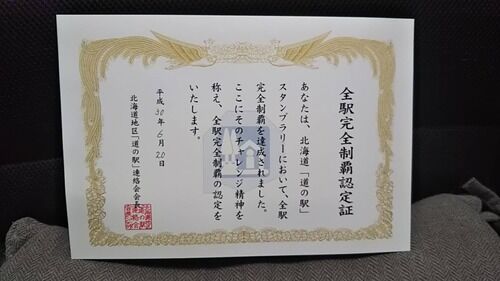 全駅完全制覇認定証
あなたは、北海道「道の駅」
スタンプラリーにおいて、全駅
完全制覇を達成されました。
ここにそのチャレンジ精神を
称え、全駅完全制覇の認定を
いたします。
平成30年6月20日
北海道地区「道の駅」連絡会会長